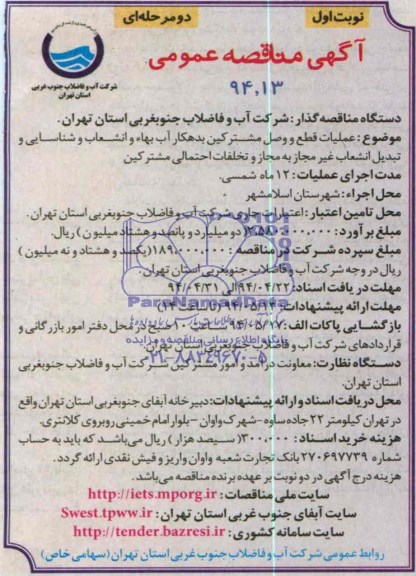 نوبت اول
دو مرحله‌ای
شرکت آب و فاضلاب جنوب غربی
استان تهران
آگهی مناقصه عمومی
۹۴,۱۳
دستگاه مناقصه گذار: شرکت آب و فاضلاب جنوبغربی استان تهران.
موضوع: عملیات قطع و وصل مشترکین بدهکار آب بهاء و انشعاب و شناسایی و
تبدیل انشعاب غیر مجاز به مجاز و تخلفات احتمالی مشترکین
مدت اجرای عملیات: ۱۲ ماه شمسی.
محل اجراء: شهرستان اسلامشهر
محل تامین اعتبار: اعتبارات جاری شرکت آب و فاضلاب جنوبغربی استان تهران.
مبلغ برآورد: (دو میلیارد و پانصد و هشتاد میلیون) ریال.
مبلغ سپرده شرکت در مناقصه: ۱۸۹.۰۰۰.۰۰۰ (یکصد و هشتاد و نه میلیون)
ریال در وجه شرکت آب و فاضلاب جنوبغربی استان تهران.
مهلت دریافت اسناد: ۹۴/۰۴/۲۲ الی ۹۴/۰۴/۳۱
مهلت ارائه پیشنهادات: (تا ساعت ۱۴)
بازگشایی پاکات الف: ساعت صبح در محل دفتر امور بازرگانی و
قراردادهای شرکت آب و فاضلاب جنوبغربی استان تهران.
دستگاه نظارت: معاونت درآمد و امور مشترکین شرکت آب و فاضلاب جنوبغربی
استان تهران.
محل دریافت اسناد و ارائه پیشنهادات: دبیرخانه آبفای جنوبغربی استان تهران واقع
در تهران کیلومتر ۲۲ جاده ساوه-شهرک واوان -بلوار امام خمینی روبروی کلانتری.
هزینه خرید اسناد: ۳۰۰.۰۰۰ (سیصد هزار) ریال می‌باشد که باید به حساب
شماره ۲۷۰۶۹۷۷۳۹ بانک تجارت شعبه واوان واریز و فیش نقدی ارائه گردد.
هزینه درج آگهی در دو نوبت بر عهده برنده مناقصه می‌باشد.
سایت ملی مناقصات: http://iets.mporg.ir
سایت آبفای جنوب غربی استان تهران: Swest.tpww.ir
سایت سامانه کشوری: http://tender.bazresi.ir
روابط عمومی شرکت آب و فاضلاب جنوب غربی استان تهران (سهامی خاص)
ParsNamadData
پایگاه اطلاع رسانی مناقصه و مزایده
۰۲۱-۸۸۳۴۹۶۷۰-۵